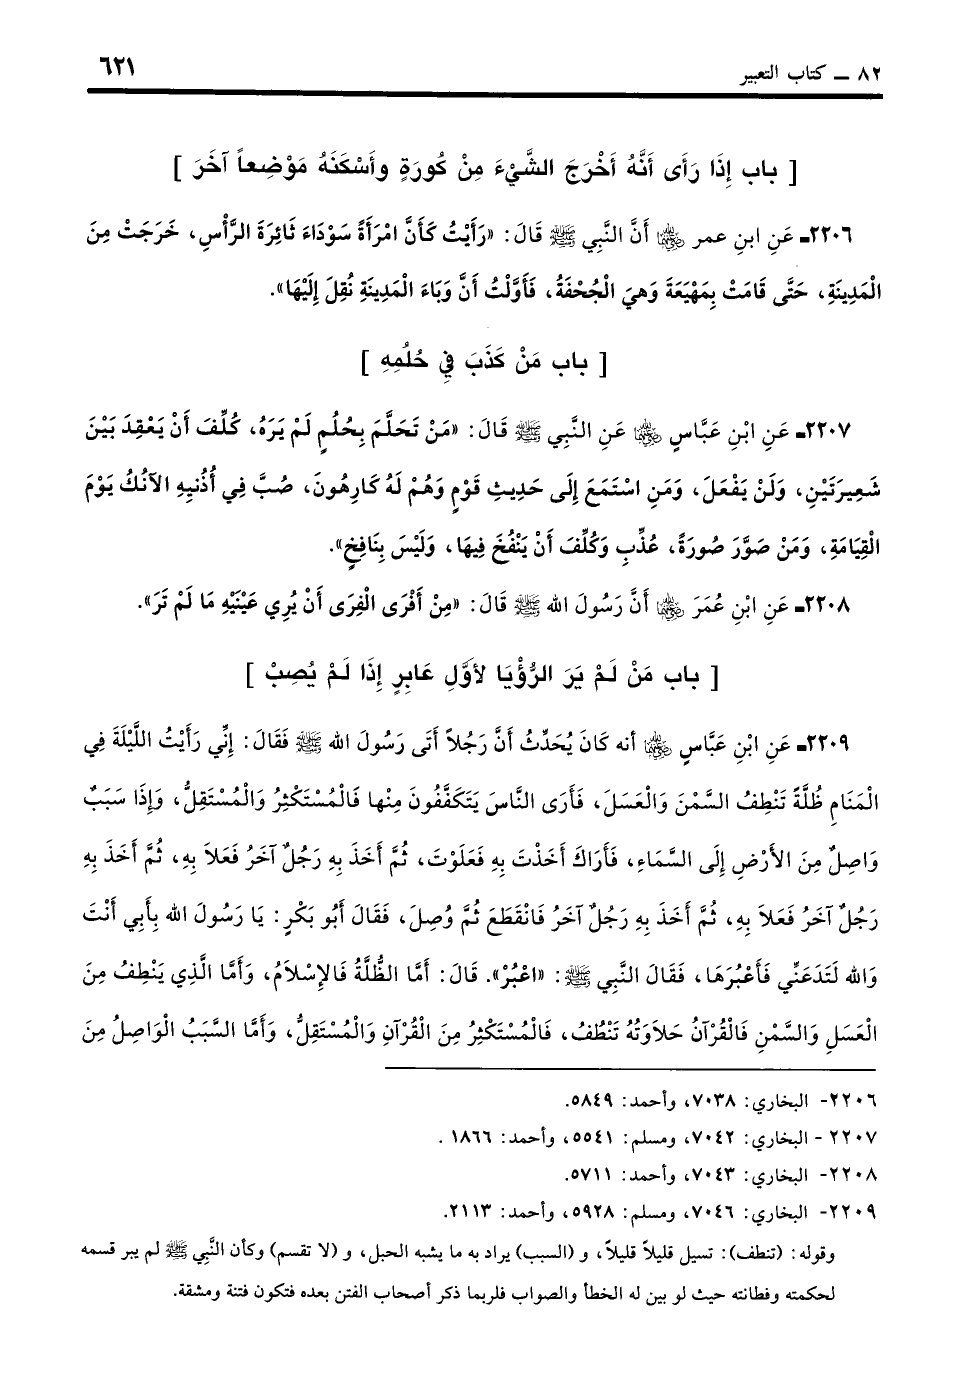 ٨٢ ــ كتاب التعبير
٦٢١
[ باب إِذَا رَأَى أَنَّهُ أَخْرَجَ الشَّيْءَ مِنْ كُورَةٍ وأَسْكَنَهُ مَوْضِعاً آخَرَ ]
٢٢٠٦ـ عَنِ ابنِ عمر ﷺ أَنَّ النَّبِي ﷺ قَالَ: «رَأَيْتُ كَأَنَّ امْرَأَةً سَوْدَاءَ ثَائِرَةَ الرَّأْسِ، خَرَجَتْ مِنَ
الْمَدِينَةِ، حَتَّى قَامَتْ بِمَهْيَعَةَ وَهيَ الْجُحْفَةُ، فَأَوَّلْتُ أَنَّ وَبَاءَ الْمَدِينَةِ نُقِلَ إِلَيْهَا».
[ باب مَنْ كَذَبَ فِي حُلُمِهِ ]
٢٢٠٧ـ عَنِ ابْنِ عَبَّاسٍ رضي الله عنهما عَنِ النَّبِي ﷺ قَالَ: «مَنْ تَحَلَّمَ بِحُلُمٍ لَمْ يَرَهُ، كُلِّفَ أَنْ يَعْقِدَ بَيْنَ
شَعِيرَتَيْنِ، وَلَنْ يَفْعَلَ، وَمَنِ اسْتَمَعَ إِلَى حَدِيثِ قَوْمٍ وَهُمْ لَهُ كَارِهُونَ، صُبَّ فِي أُذُنيِهِ الآنُكُ يَوْمَ
الْقِيَامَةِ، وَمَنْ صَوَّرَ صُورَةً، عُذِّبِ وَكُلِّفَ أَنْ يَنْفُخَ فِيهَا، وَلَيْسَ بِنَافِخٍ».
٢٢٠٨ـ عَنِ ابْنِ عُمَرَ رضي الله عنهما أَنَّ رَسُولَ الله ﷺ قَالَ: «مِنْ أَفْرَى الْفِرَى أَنْ يُرِي عَيْنَيْهِ مَا لَمْ تَرَ».
[ باب مَنْ لَمْ يَرَ الرُّؤْيَا لأوَّلِ عَابِرٍ إِذَا لَمْ يُصِبْ ]
٢٢٠٩ـ عَنِ ابْنِ عَبَّاسٍ رضي الله عنهما أنه كَانَ يُحَدِّثُ أَنَّ رَجُلاً أَتَى رَسُولَ الله ﷺ فَقَالَ: إِنِّي رَأَيْتُ اللَّيْلَةَ فِي
الْمَنَامِ ظُلَّةً تَنْطِفُ السَّمْنَ وَالْعَسَلَ، فَأَرَى النَّاسَ يَتَكَفَّفُونَ مِنْها فَالْمُسْتَكْثِرُ وَالْمُسْتَقِلُّ، وَإِذَا سَبَبٌ
وَاصِلٌ مِنَ الأَرْضِ إِلَى السَّمَاءِ، فَأَرَاكَ أَخَذْتَ بِهِ فَعَلَوْتَ، ثُمَّ أَخَذَ بِهِ رَجُلٌ آخَرُ فَعَلاَ بِهِ، ثُمَّ أَخَذَ بِهِ
رَجُلٌ آخَرُ فَعَلاَ بِهِ، ثُمَّ أَخَذَ بِهِ رَجُلٌ آخَرُ فَانْقَطَعَ ثُمَّ وُصِلَ، فَقَالَ أَبُو بَكْرٍ: يَا رَسُولَ الله بِأَبِي أَنْتَ
وَالله لَتَدَعَنِّي فَأَعْبُرَهَا، فَقَالَ النَّبِي ﷺ: «اعْبُرْ». قَالَ: أَمَّا الظُّلَّةُ فَالإِسْلاَمُ، وَأَمَّا الَّذِي يَنْطِفُ مِنَ
الْعَسَلِ وَالسَّمْنِ فَالْقُرْآنُ حَلاَوَتُهُ تَنْطُفُ، فَالْمُسْتَكْثِرُ مِنَ الْقُرْآنِ وَالْمُسْتَقِلُّ، وَأَمَّا السَّبَبُ الْوَاصِلُ مِنَ
٢٢٠٦- البخاري: ٧٠٣٨، وأحمد: ٥٨٤٩.
٢٢٠٧ - البخاري: ٧٠٤٢، ومسلم: ٥٥٤١، وأحمد: ١٨٦٦ .
٢٢٠٨- البخاري: ٧٠٤٣، وأحمد: ٥٧١١.
٢٢٠٩- البخاري: ٧٠٤٦، ومسلم: ٥٩٢٨، وأحمد: ٢١١٣.
وقوله: (تنطف): تسيل قليلاً قليلاً، و (السبب) يراد به ما يشبه الحبل، و (لا تقسم) وكأن النَّبي ﷺ لم يبر قسمه
لحكمته وفطانته حيث لو بين له الخطأ والصواب فلربما ذكر أصحاب الفتن بعده فتكون فتنة ومشقة.